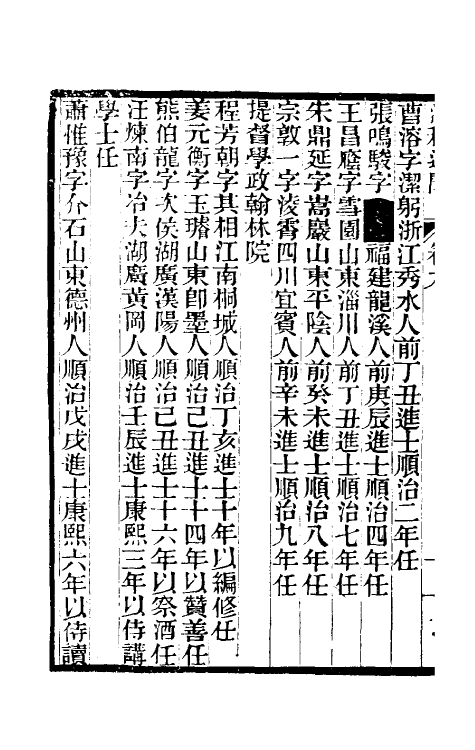 曹溶字潔躬浙江秀水人前丁丑進士順治二年任
張鳴駿字福建龍溪人前庚辰進士順治四年任
王昌廕字雪園山東淄川人前丁丑進士順治七年任
朱鼎延字嵩巖山東平陰人前癸未進士順治八年任
宗敦一字淩霄四川宜賓人前辛未進士順治九年任
提督學政翰林院
程芳朝字其相江南桐城人順治丁亥進士十年以編修任
姜元衡字玉璿山東卽墨人順治己丑進士十四年以贊善任
熊伯龍字次侯湖廣漢陽人順治己丑進士十六年以祭酒任
汪煉南字冶夫湖廣黃岡人順治壬辰進士康熙三年以侍講
學士任
蕭惟豫字介石山東德州人順治戊戌進士康熙六年以侍讀